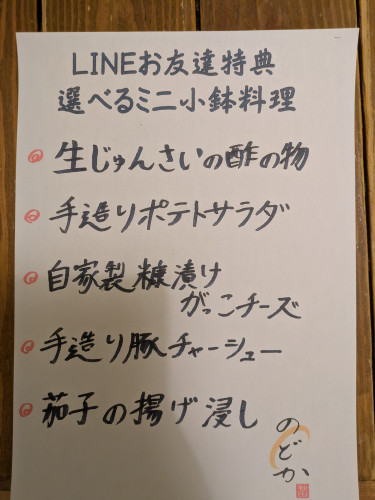 LINEお友達特典
選べるミニ小鉢料理
生じゅんさいの酢の物
手造りポテトサラダ
自家製糠漬け
がっこチーズ
手造り豚チャーシュー
茄子の揚げ浸し
のどか